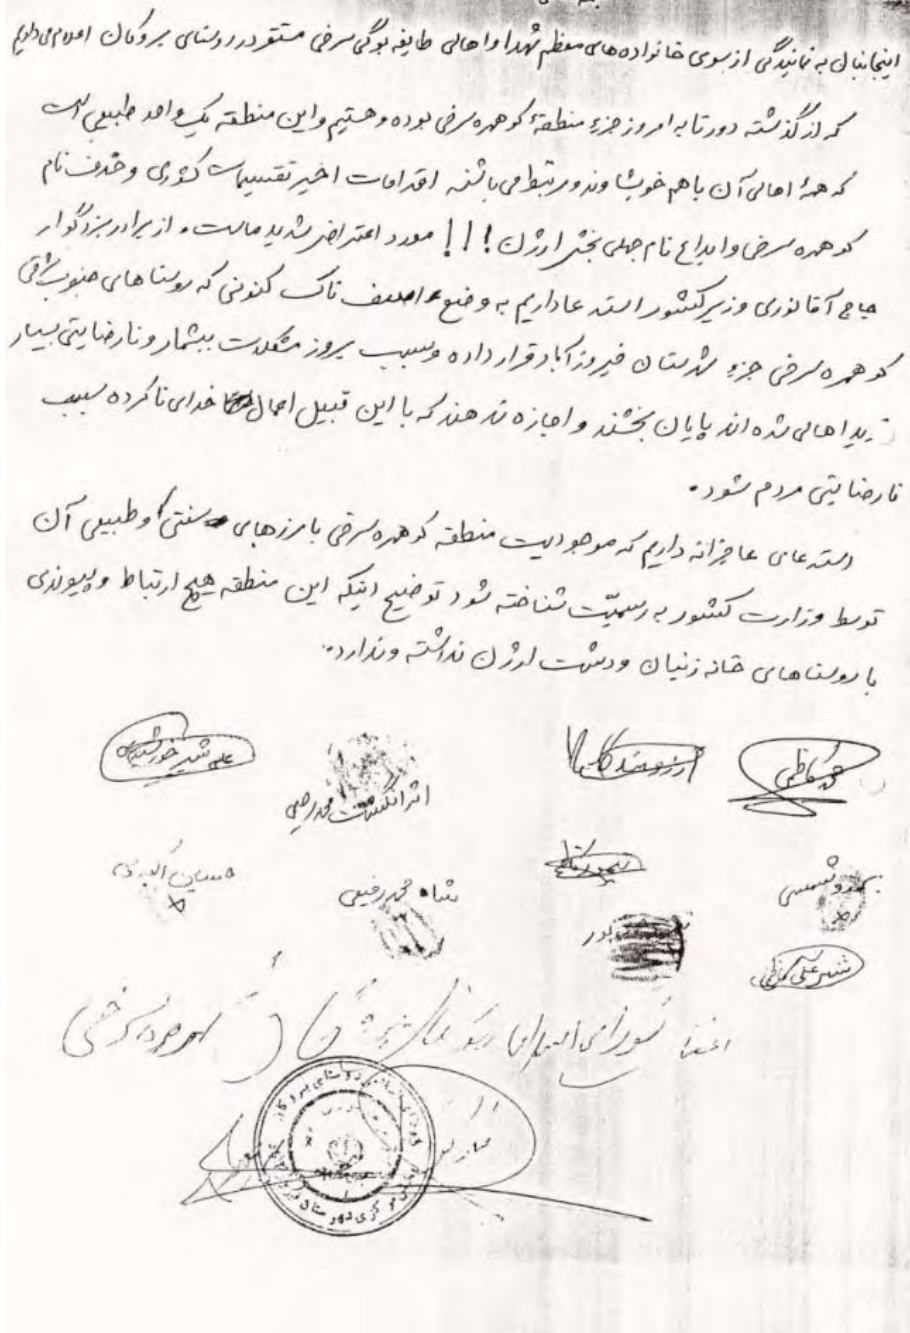 اینجانبان به نمایندگی از سوی خانواده های معظم شهدا و اهالی طایفه بوگی سرخی مستقر در روستای بروکان اعلام می داریم
که از گذشته دور تا به امروز جزء منطقهٔ کوهمره سرخی بوده و هستیم و این منطقه یک واحد طبیعی است
که همهٔ اهالی آن با هم خویشاوند و مرتبط می باشند اقدامات اخیر تقسیمات کشوری و حذف نام
کوهمره سرخی و ابداع نام جعلی بخش ارژن!!! مورد اعتراض شدید ماست. از برادر بزرگوار
حاج آقا نوری وزیر کشور استدعا داریم به وضع اسف ناک کنونی که روستاهای جنوب شرقی
کوهمره سرخی جزء شهرستان فیروزآباد قرار داده و سبب بروز مشکلات بیشمار و نارضایتی بسیار
شدید اهالی شده اند پایان بخشند و اجازه ندهند که با این قبیل اعمال خدای نا کرده سبب
نارضایتی مردم شود.
استدعای عاجزانه داریم که موجودیت منطقه کوهمره سرخی با مرزهای سنتی و طبیعی آن
توسط وزارت کشور به رسمیّت شناخته شود توضیح اینکه این منطقه هیچ ارتباط و پیوندی
با روستاهای خانه زنیان و دشت ارژن نداشته و ندارد.
علی شیر خورشیدی
اثر انگشت محمد رضی
کاظمی
شاه محمد رفیعی
شمسی
شیر علی کاظمی
اعضا شورای اسلامی کوهمره سرخی
روستای بروکان
مرکزی شهرستان